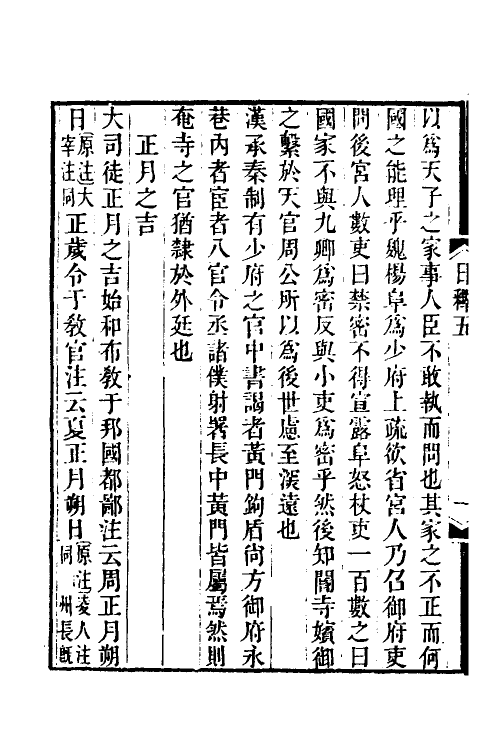 以爲天子之家事人臣不敢執而問也其家之不正而何
國之能理乎魏楊阜爲少府上疏欲省宮人乃召御府吏
問後宮人數吏曰禁密不得宣露阜怒杖吏一百數之曰
國家不與九卿爲密反與小吏爲密乎然後知閽寺嬪御
之繫於天官周公所以爲後世慮至深遠也
漢承秦制有少府之官中書謁者黃門鉤盾尙方御府永
巷內者宦者八官令丞諸僕射署長中黃門皆屬焉然則
奄寺之官猶隸於外廷也
正月之吉
大司徒正月之吉始和布敎于邦國都鄙注云周正月朔
日(原注)大宰注同正歲令于敎官注云夏正月朔日(原注)凌人注同州長旣
日釋五
一